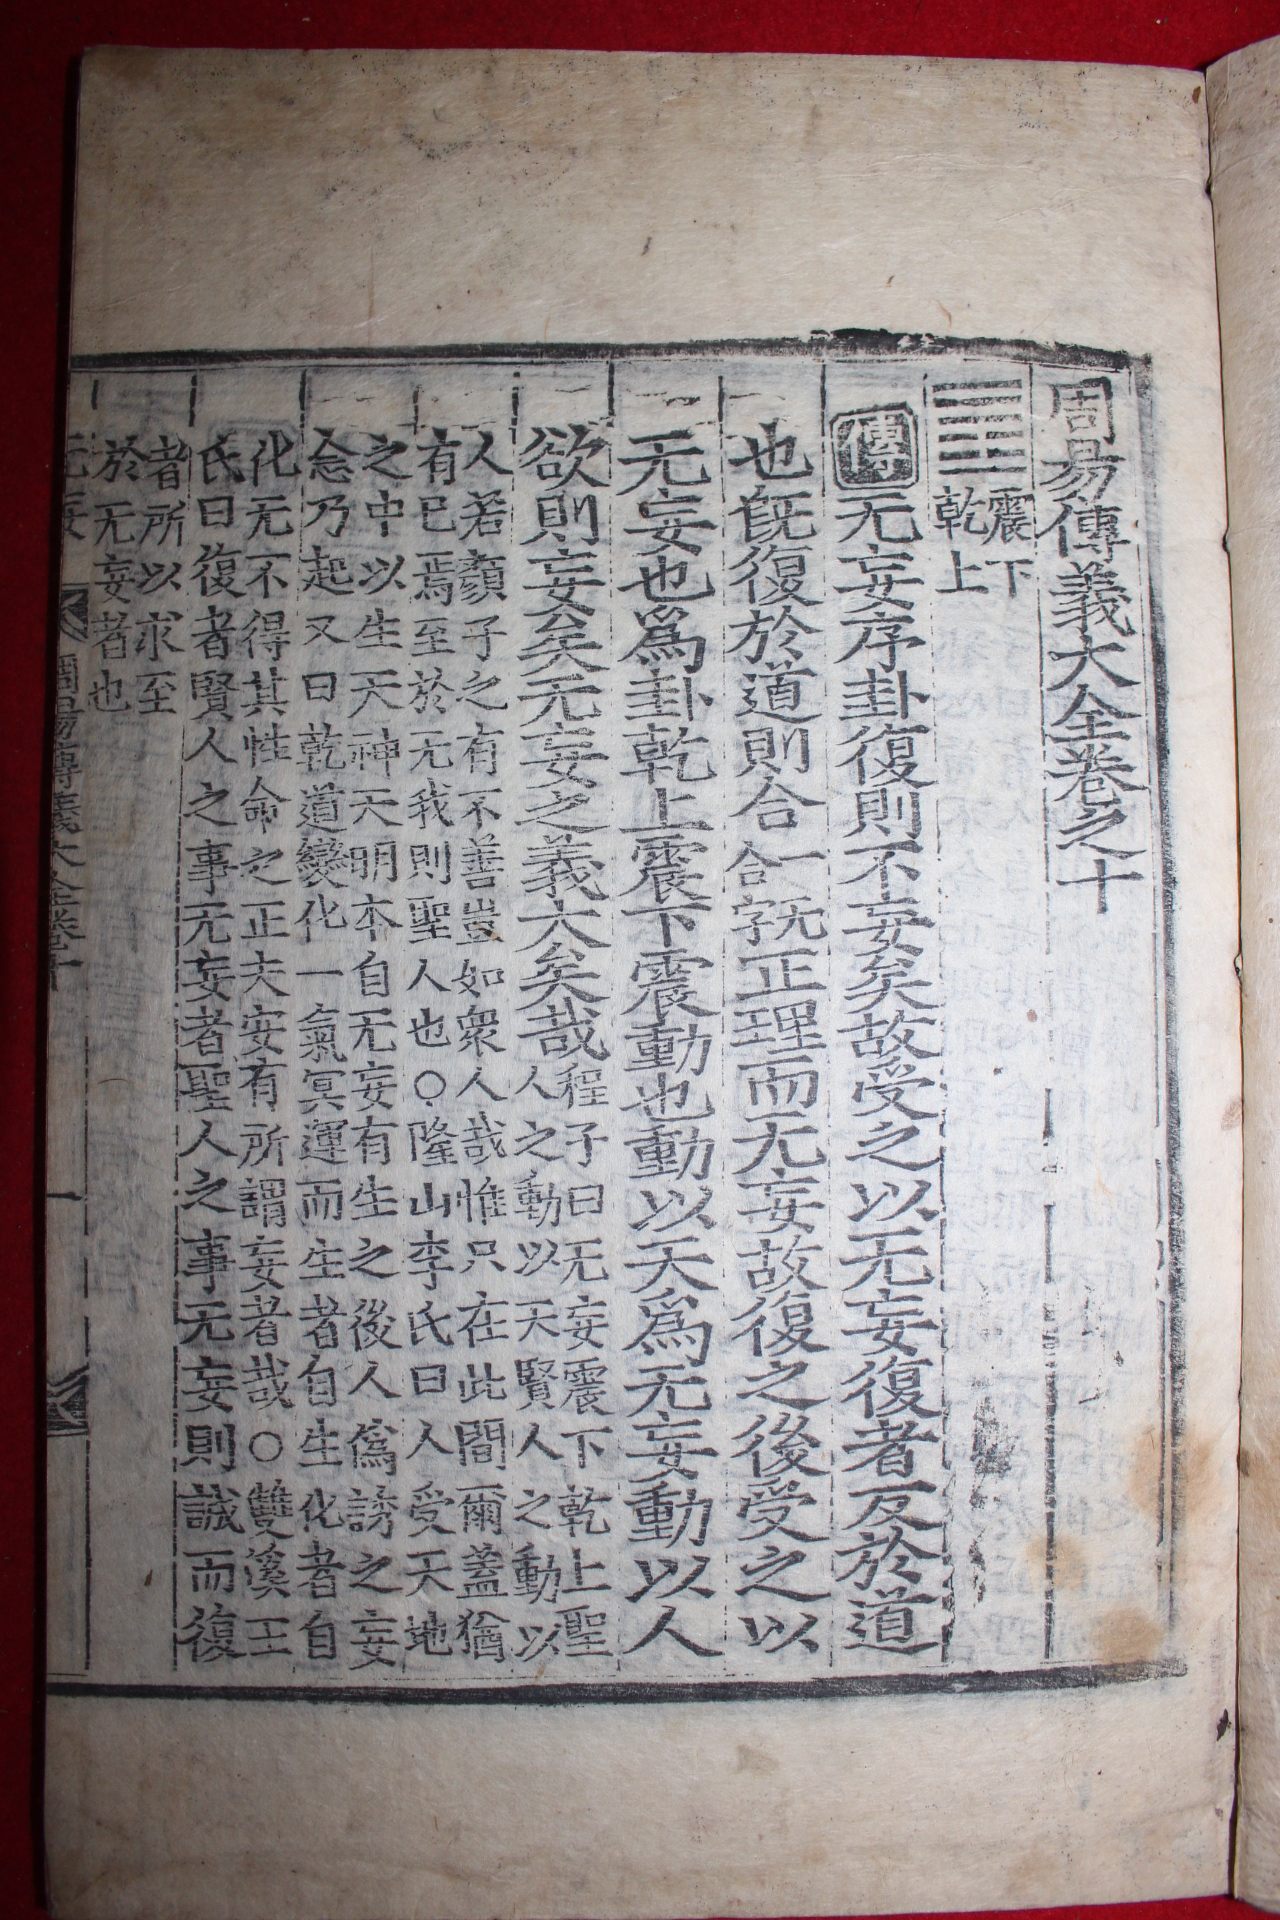 周易傳義大全卷之十
震下
乾上
傳无妄序卦復則不妄矣故受之以无妄復者反於道
也旣復於道則合
一无
合字
正理而无妄故復之後受之以
无妄也爲卦乾上震下震動也動以天爲无妄動以人
欲則妄矣无妄之義大矣哉
程子曰无妄震下乾上聖
人之動以天賢人之動以
人若顏子之有不善豈如衆人哉惟只在此間爾蓋猶
有已焉至於无我則聖人也○隆山李氏曰人受天地
之中以生天神天明本自无妄有生之後人爲誘之妄
念乃起又曰乾道變化一氣冥運而生者自生化者自
化无不得其性命之正夫安有所謂妄者哉○雙溪王
氏曰復者賢人之事无妄者聖人之事无妄則誠而復
者所以求至
於无妄者也
无妄
周易傳義大全卷十
一